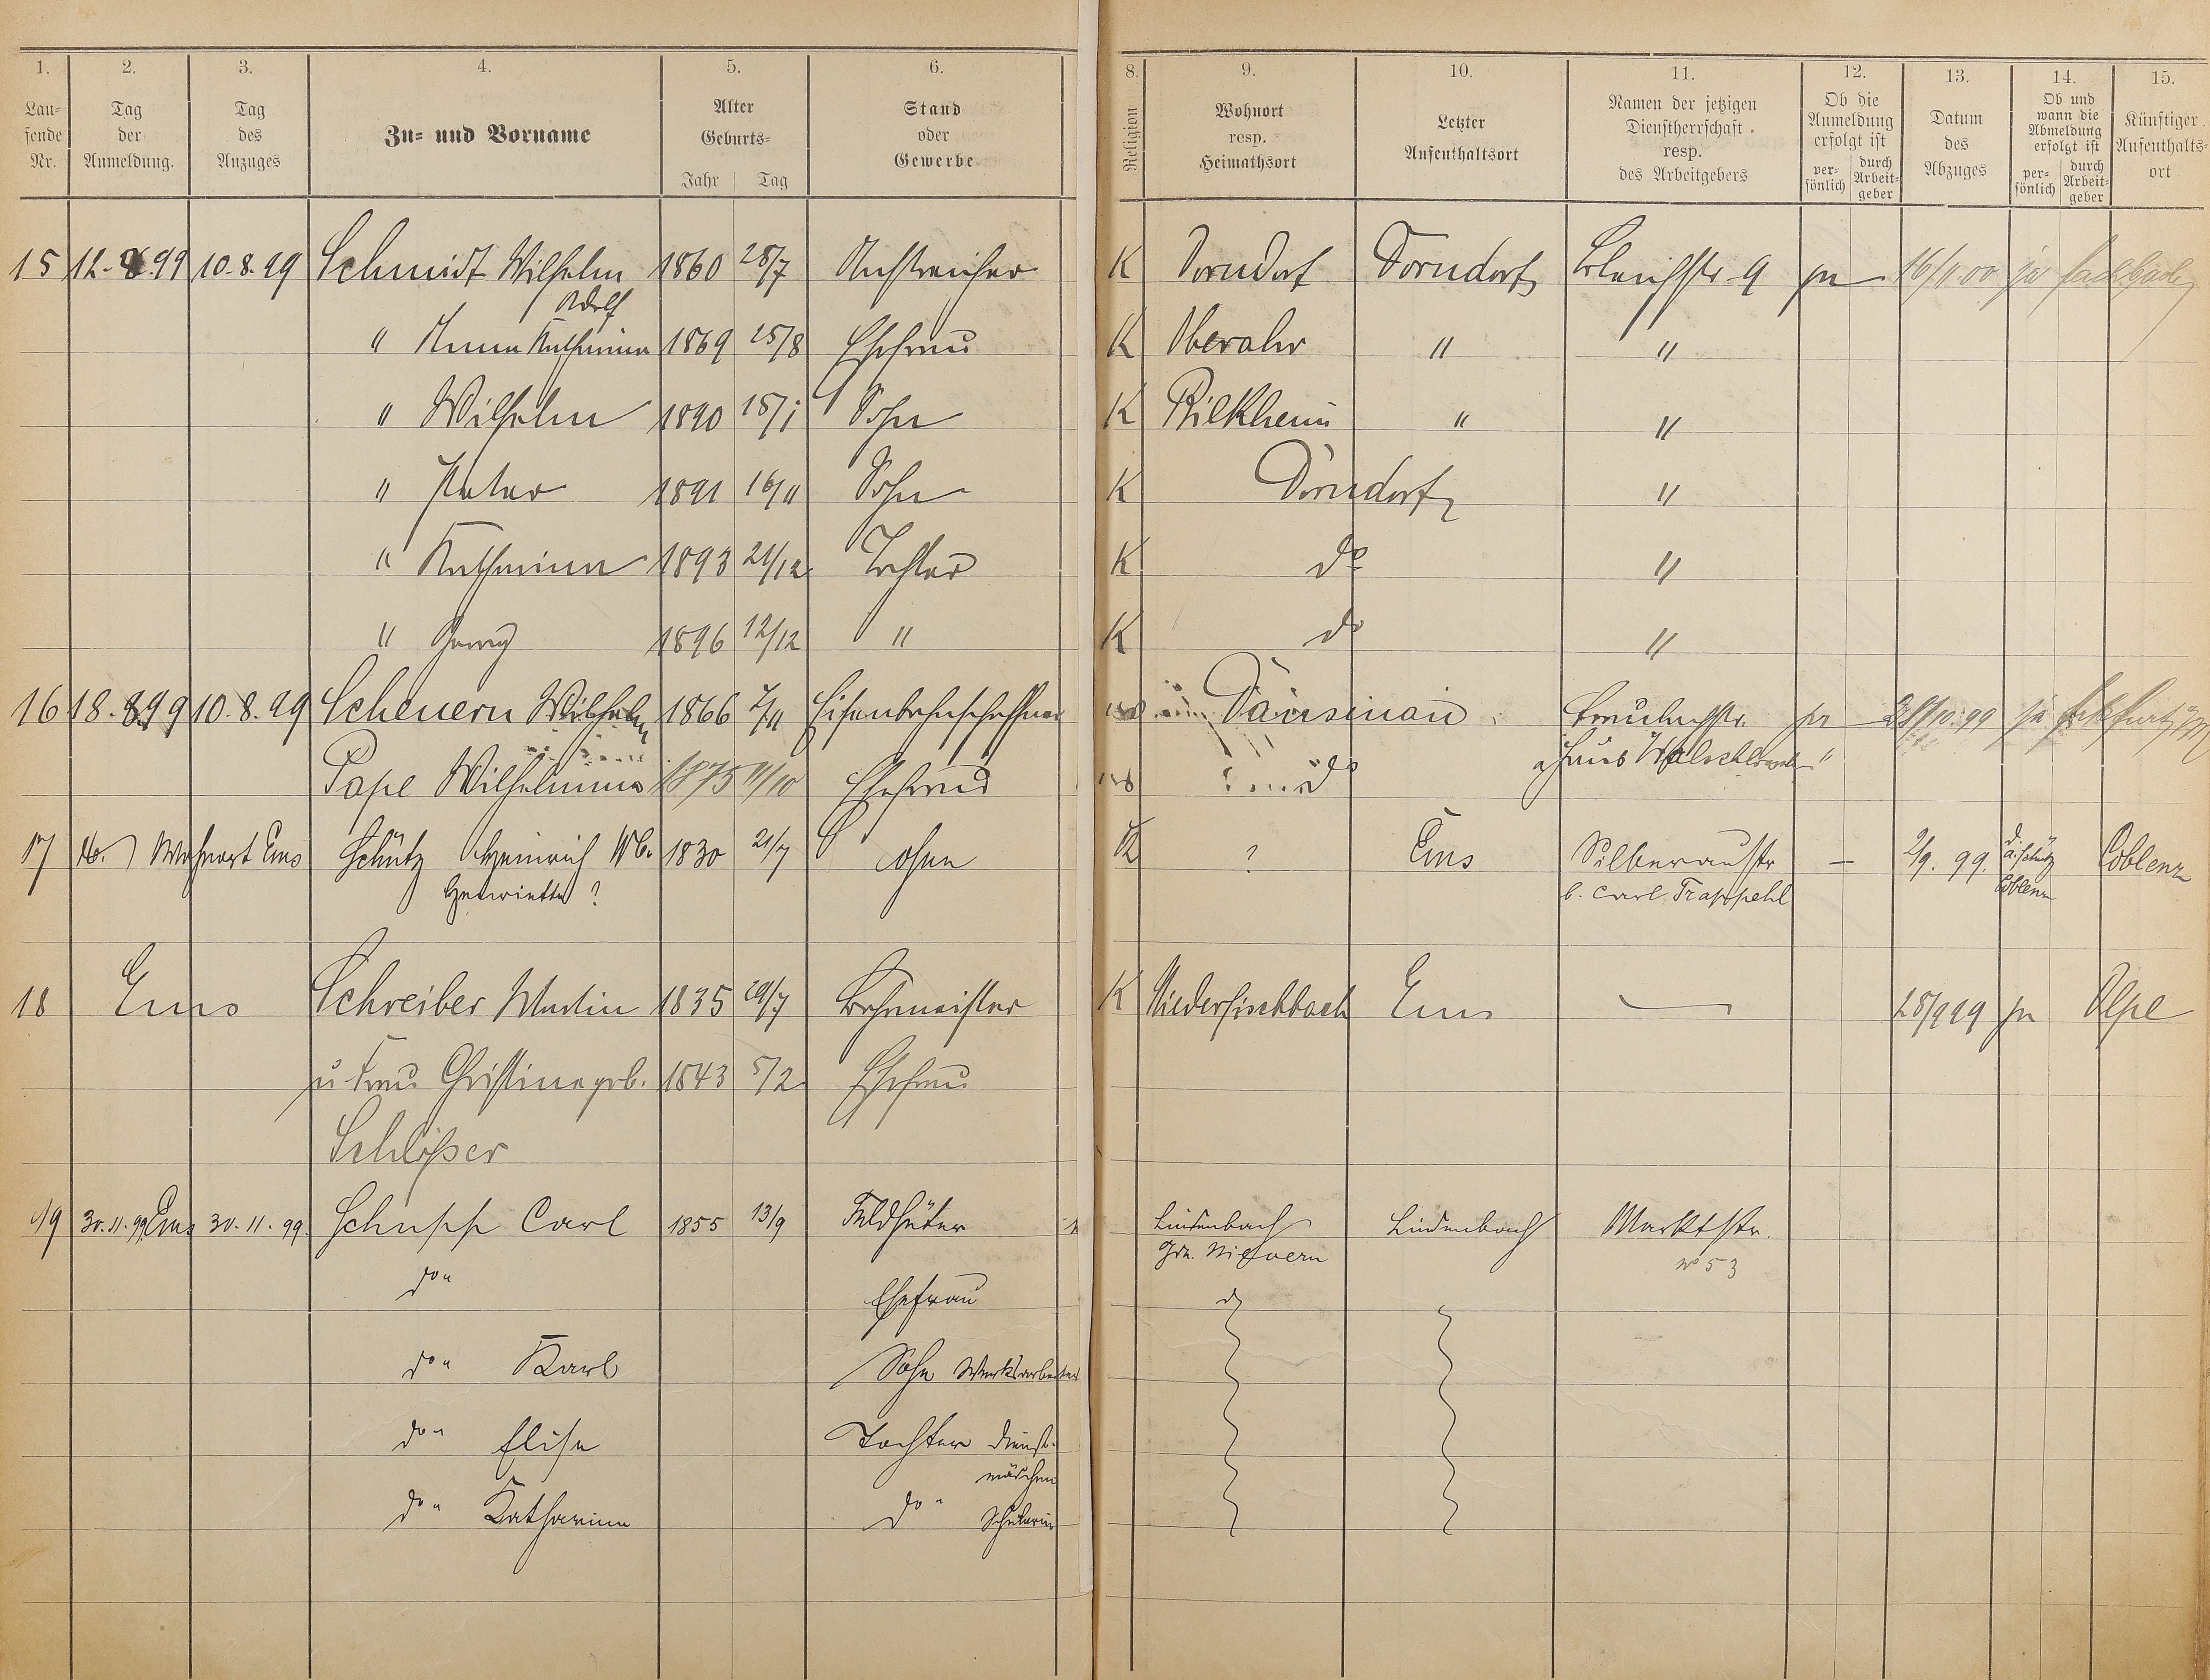 1. 2. 3. 4. 5. 6. 8. 9. 10. 11. 12. 13. 14. 15.
Lau=
fende
Nr.
Tag
der
Anmeldung.
Tag
des
Anzuges
Zu= und Vorname
Alter
Geburts=
Jahr Tag
Stand
oder
Gewerbe
Religion
Wohnort
resp.
Heimathsort
Letzter
Aufenthaltsort
Namen der jetzigen
Dienstherrschaft
resp.
des Arbeitgebers
Ob die
Anmeldung
erfolgt ist
per=
sönlich
durch
Arbeit=
geber
Datum
des
Abzuges
Ob und
wann die
Abmeldung
erfolgt ist
per=
sönlich
durch
Arbeit=
geber
Künftiger
Aufenthalts=
ort
15 12.8.99 10.8.99 Schmidt Wilhelm 1860 28/7 Anstreicher K Dorndorf Dorndorf Bleichstr 9 ja 16/1 00 ja
Adolf
" Anna Katharina 1869 25/8 Ehefrau K Oberahr " "
" Wilhelm 1890 15/1 Sohn K Bilkheim " "
" Peter 1891 16/11 Sohn K Dorndorf "
" Katharina 1893 21/12 Tochter K do "
" Georg 1896 12/12 " K do "
16 18.8.99 10.8.99 Scheuern Wilhelm 1866 7/11 Eisenbahnschaffner Dausenau ja 28/10.99 ja
Pape Wilhelmina 1875 11/10 Ehefrau do Haus
17 Wohnort Ems Schütz Heinrich Wb. 1830 21/7 ohne K ? Ems Silberaustr – 2/9. 99. Schütz Coblenz
Henriette ? b. Carl Trappehl Coblenz
18 Ems Schreiber Martin 1835 29/7 Bahnmeister K Niederfischbach Ems — 28/9 99 ja Olpe
u Frau Christina geb. 1843 5/2 Ehefrau
Schlößer
19 30.11.99 Ems 30.11.99. Schupp Carl 1855 13/9 Feldhüter Lindenbach Lindenbach Marktstr.
Gem. Nievern No 53
do " Ehefrau
do " Karl Sohn Werksarbeiter
do " Elise Tochter Dienst-
mädchen
do " Katharina do " Schülerin